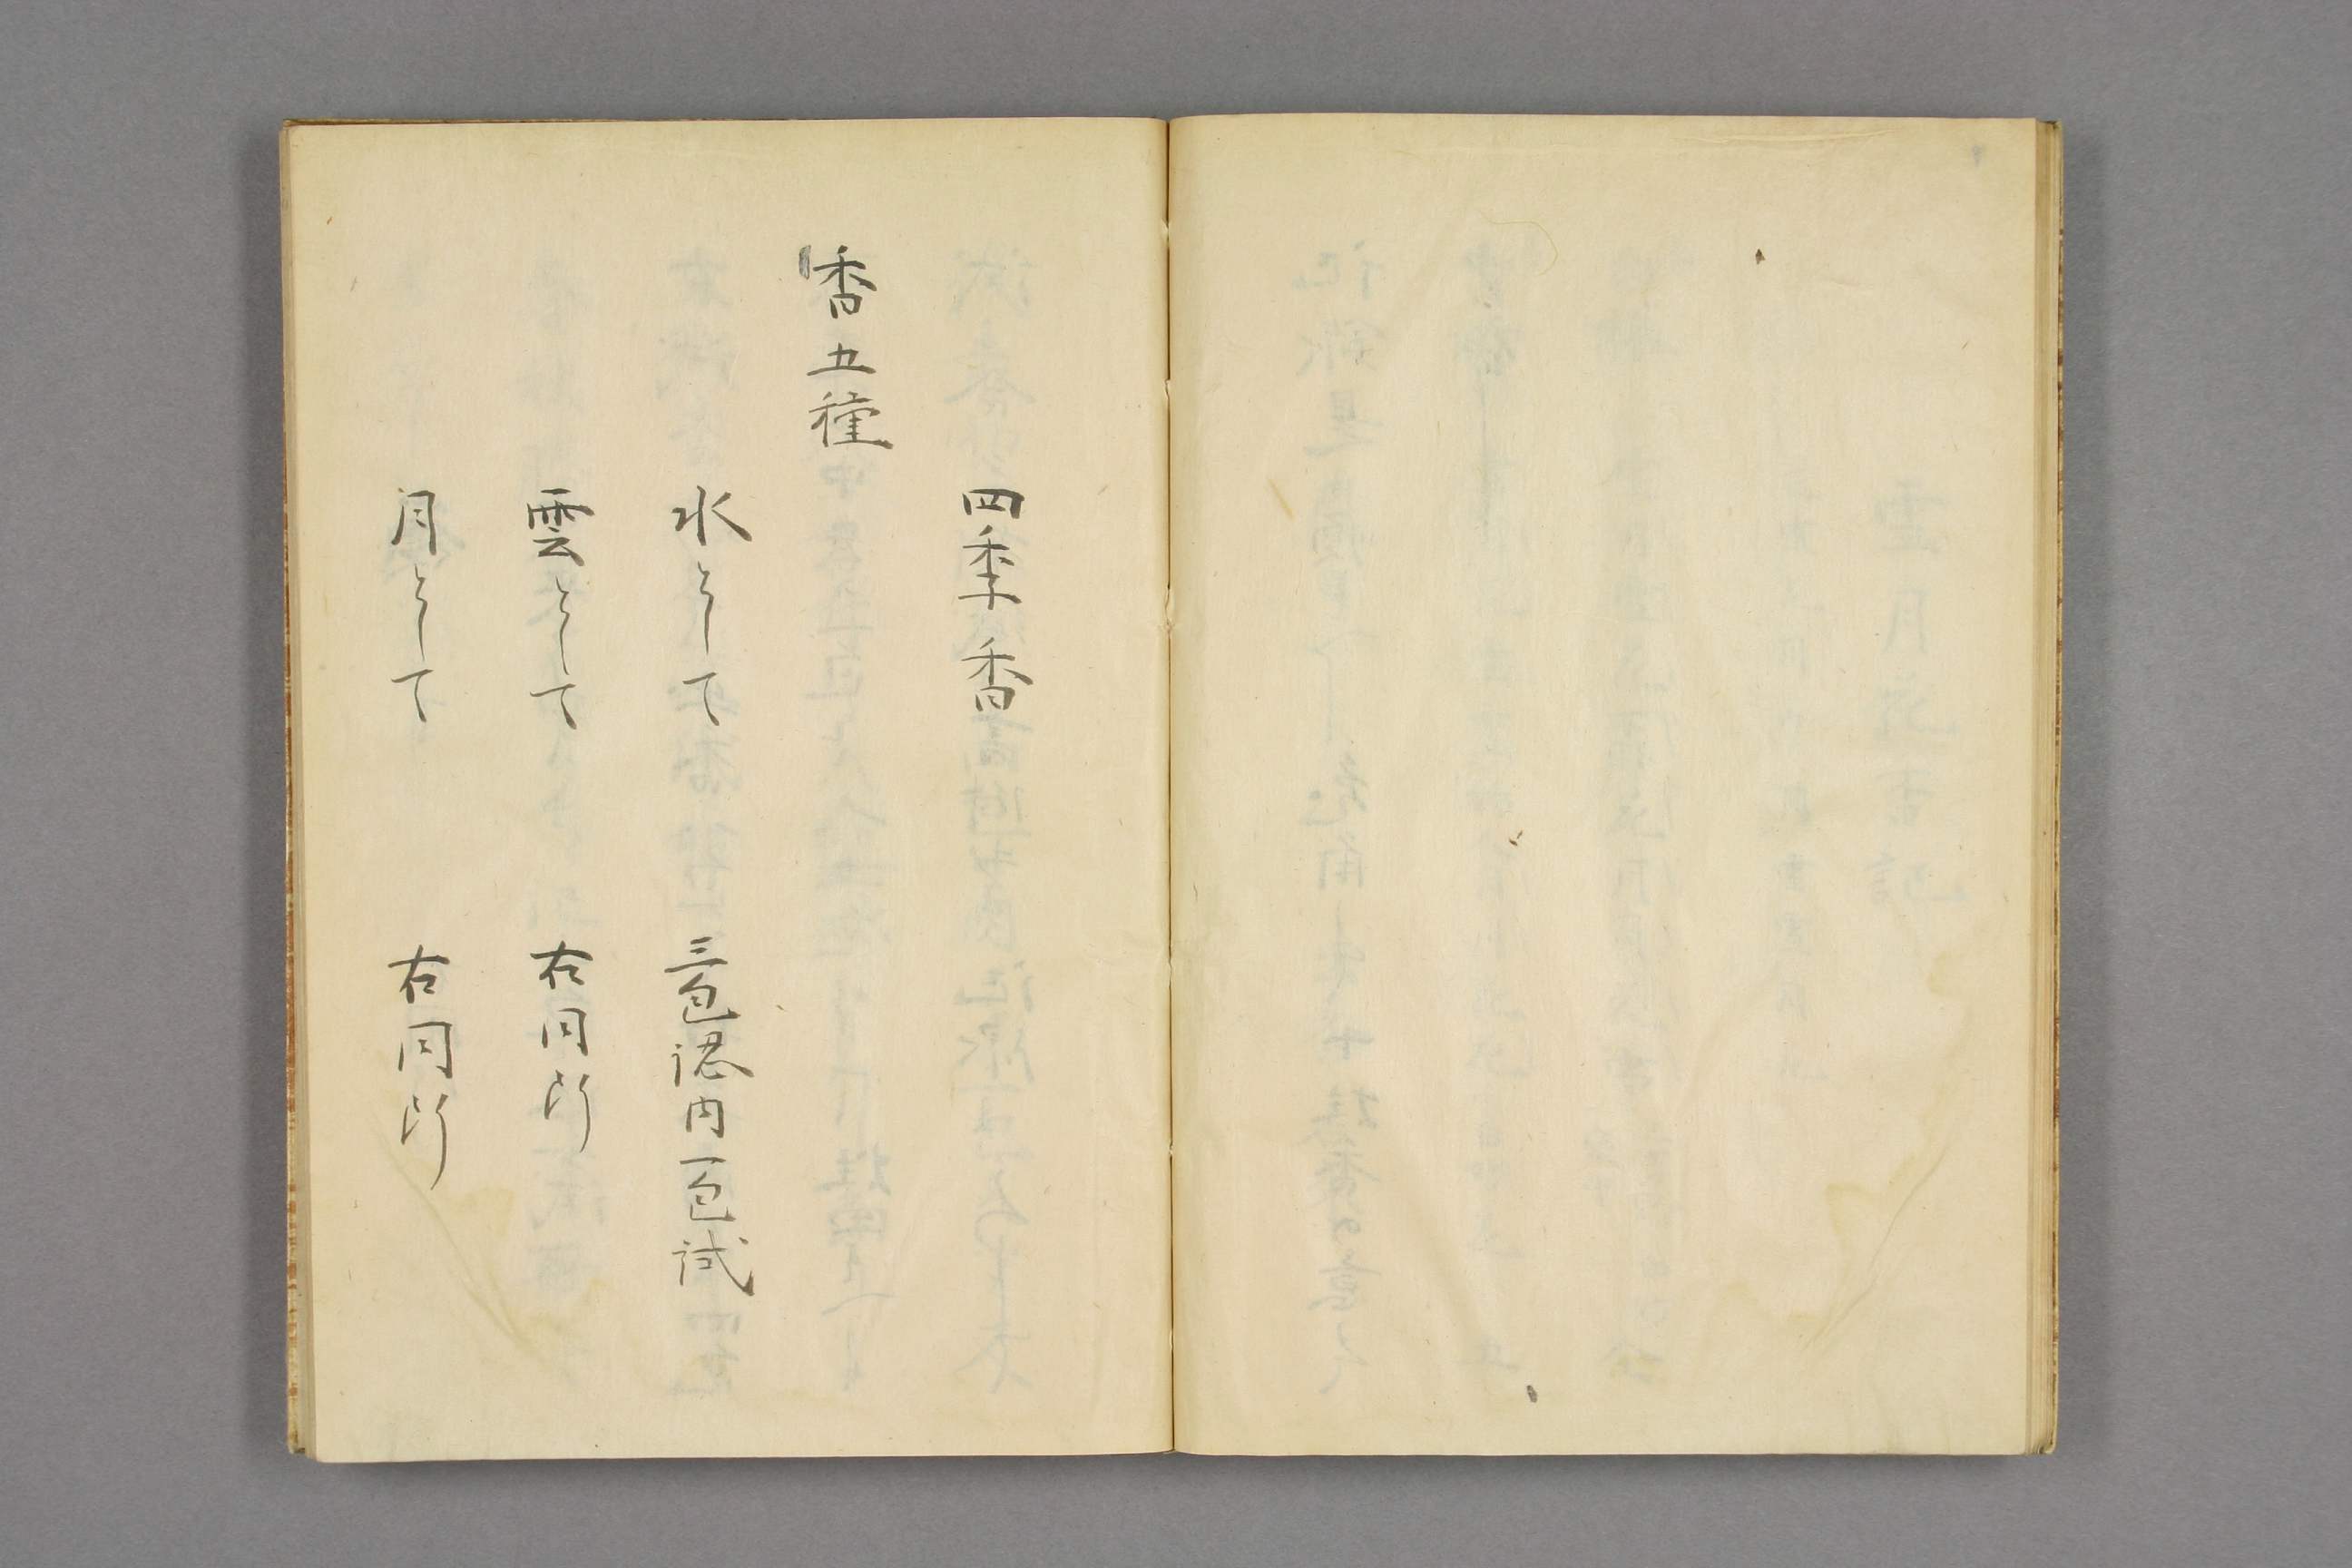 四季香
香五種
水として 三包認内一包試
雲として 右同断
月として 右同断